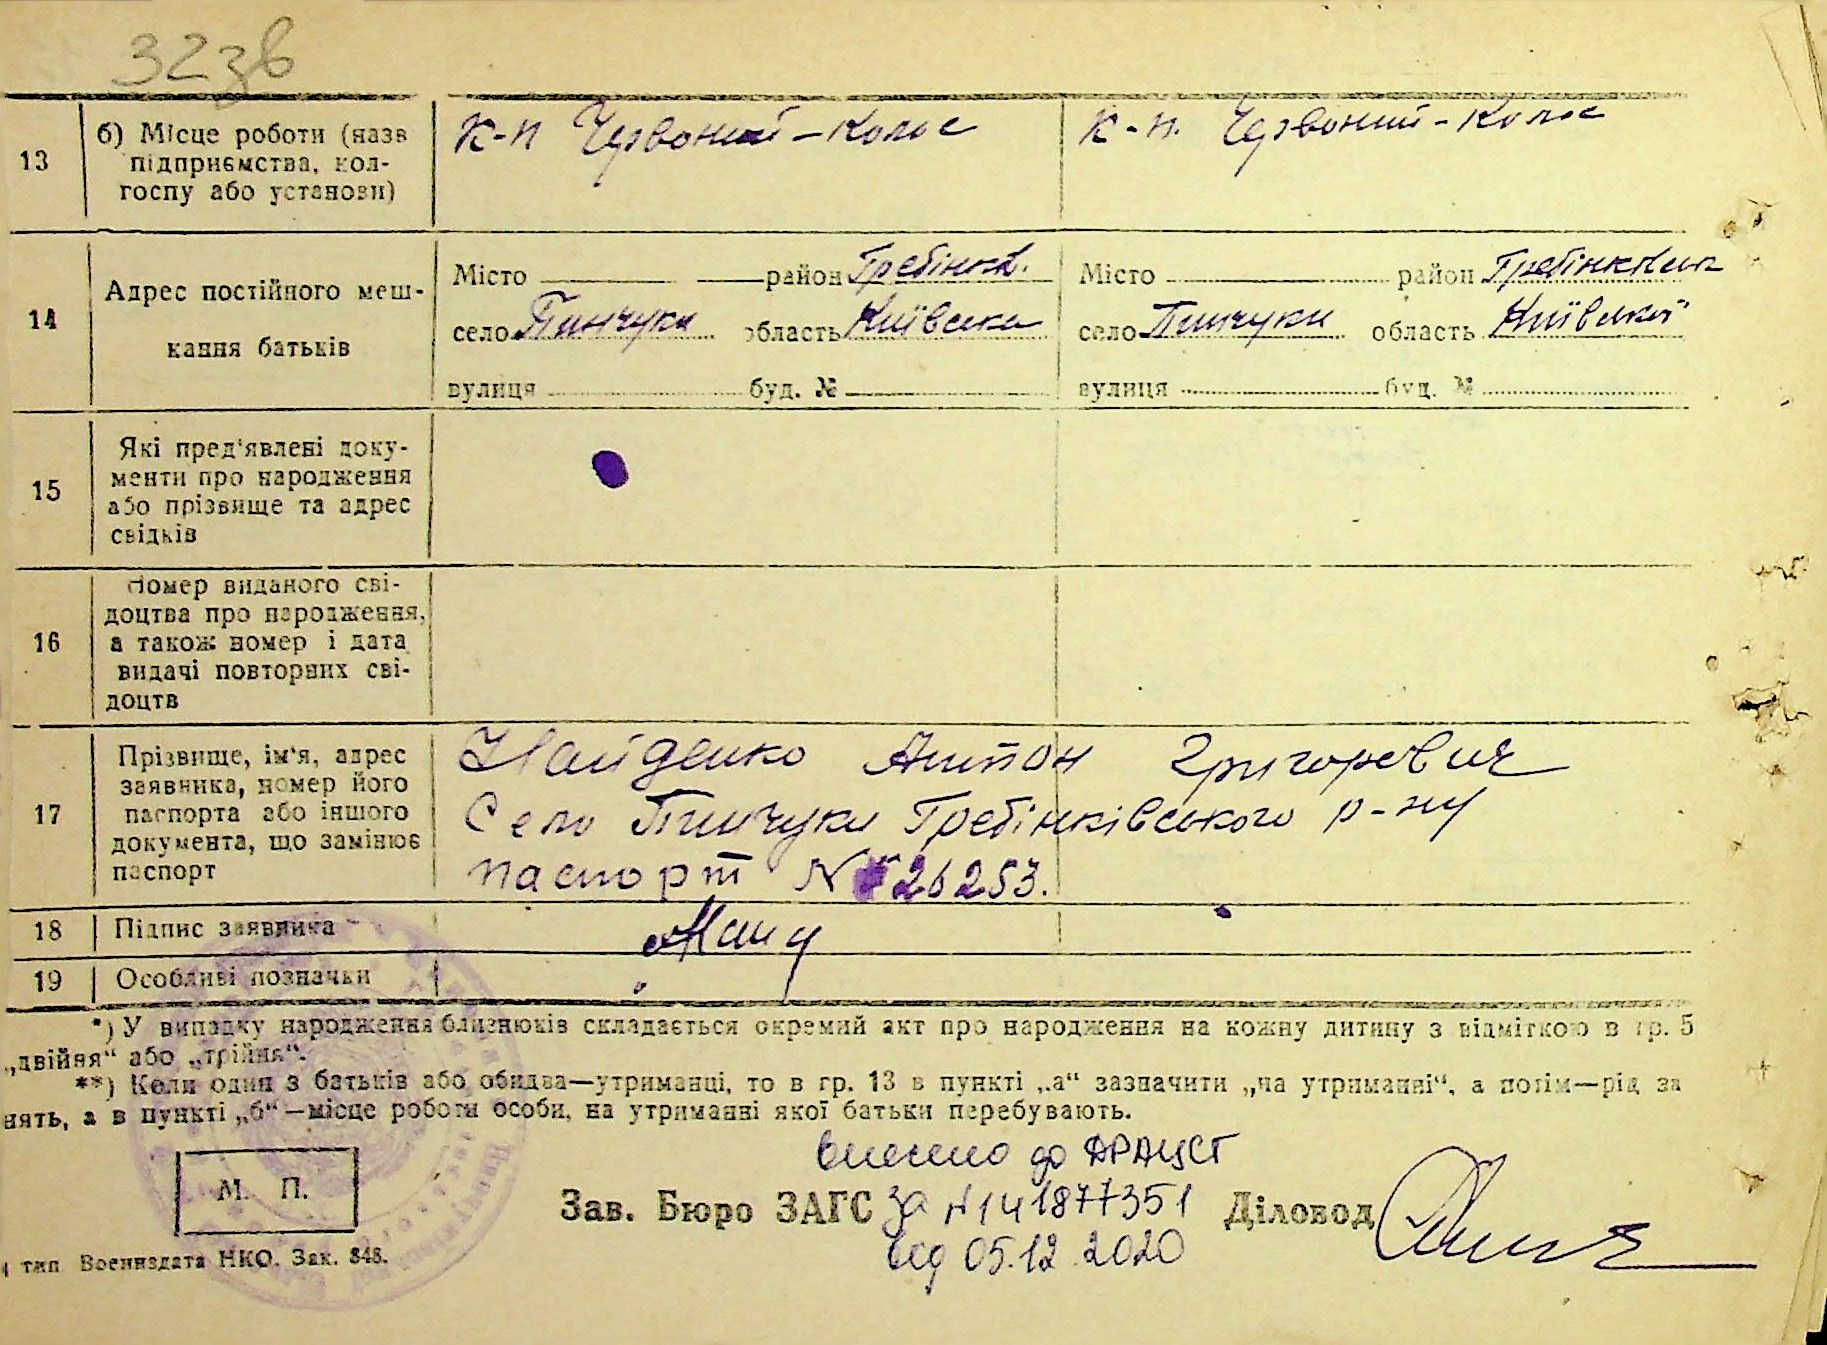 32зв
13
б) Місце роботи (назв
підприємства, кол-
госпу або установи)
К-п Червоний-Колос
К-п. Червоний-Колос
14
Адрес постійного меш-
кання батьків
Місто район Гребінків.
село Пинчуки область Київська
вулиця буд. №
Місто район Гребінківськ
село Пинчуки область Київської
вулиця буд. №
15
Які пред'явлені доку-
менти про народження
або прізвище та адрес
свідків
16
Номер виданого сві-
доцтва про народження,
а також номер і дата
видачі повторних сві-
доцтв
17
Прізвище, ім'я, адрес
заявника, номер його
паспорта або іншого
документа, що замінює
паспорт
Найденко Антон Григоревич
Село Пинчуки Гребінківського р-ну
паспорт № 26253.
18 Підпис заявника
Найд
19 Особливі позначки
*) У випадку народження близнюків складається окремий акт про народження на кожну дитину з відміткою в гр. 5
„двійня“ або „трійня“.
**) Коли один з батьків або обидва—утриманці, то в гр. 13 в пункті „а“ зазначити „на утриманні“, а потім—рід за
нять, а в пункті „б“—місце роботи особи, на утриманні якої батьки перебувають.
внесено до ДРАЦСГ
М. П.
Зав. Бюро ЗАГС за №141877351 Діловод
від 05.12.2020
тип Воениздата НКО. Зак. 848.